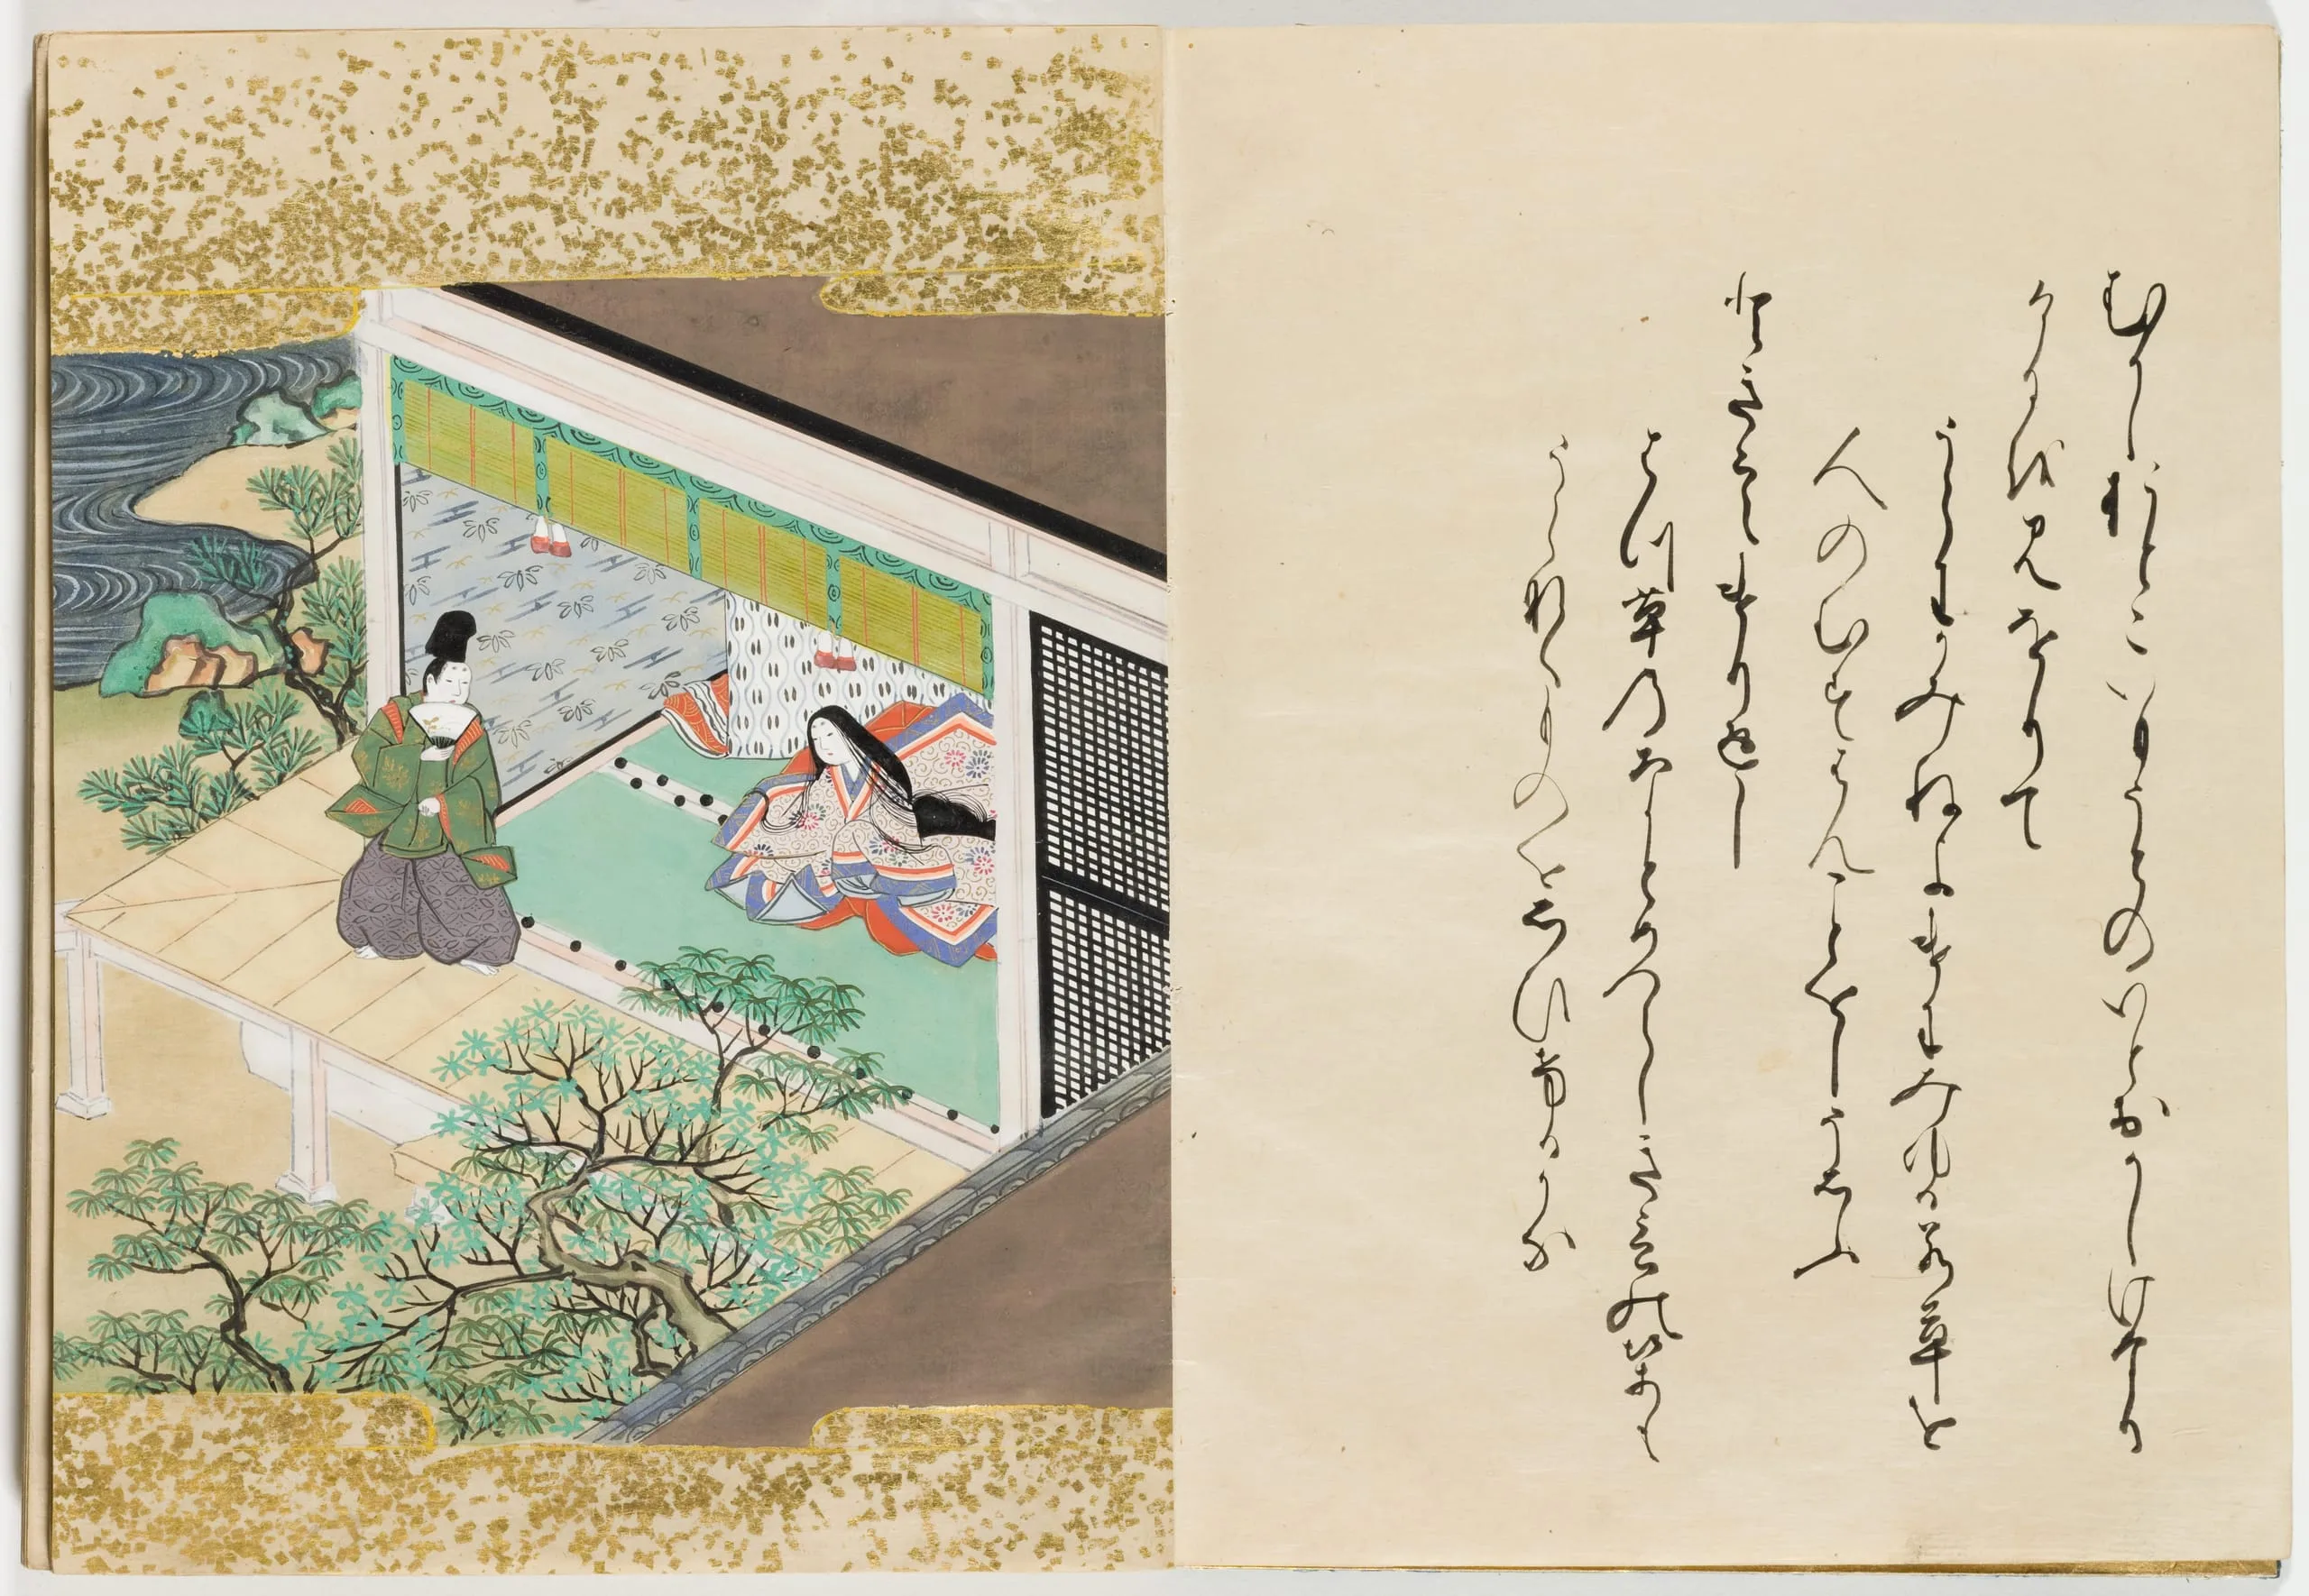 むかしおとこいもうとのいとおかしけなり
けるを見をりて
うらわかみねよけにみゆる若草を
人のむすはんことをしそおもふ
ときこえけりかへし
はつ草のなとめつらしきことのはそ
うらなくものをおもひけるかな